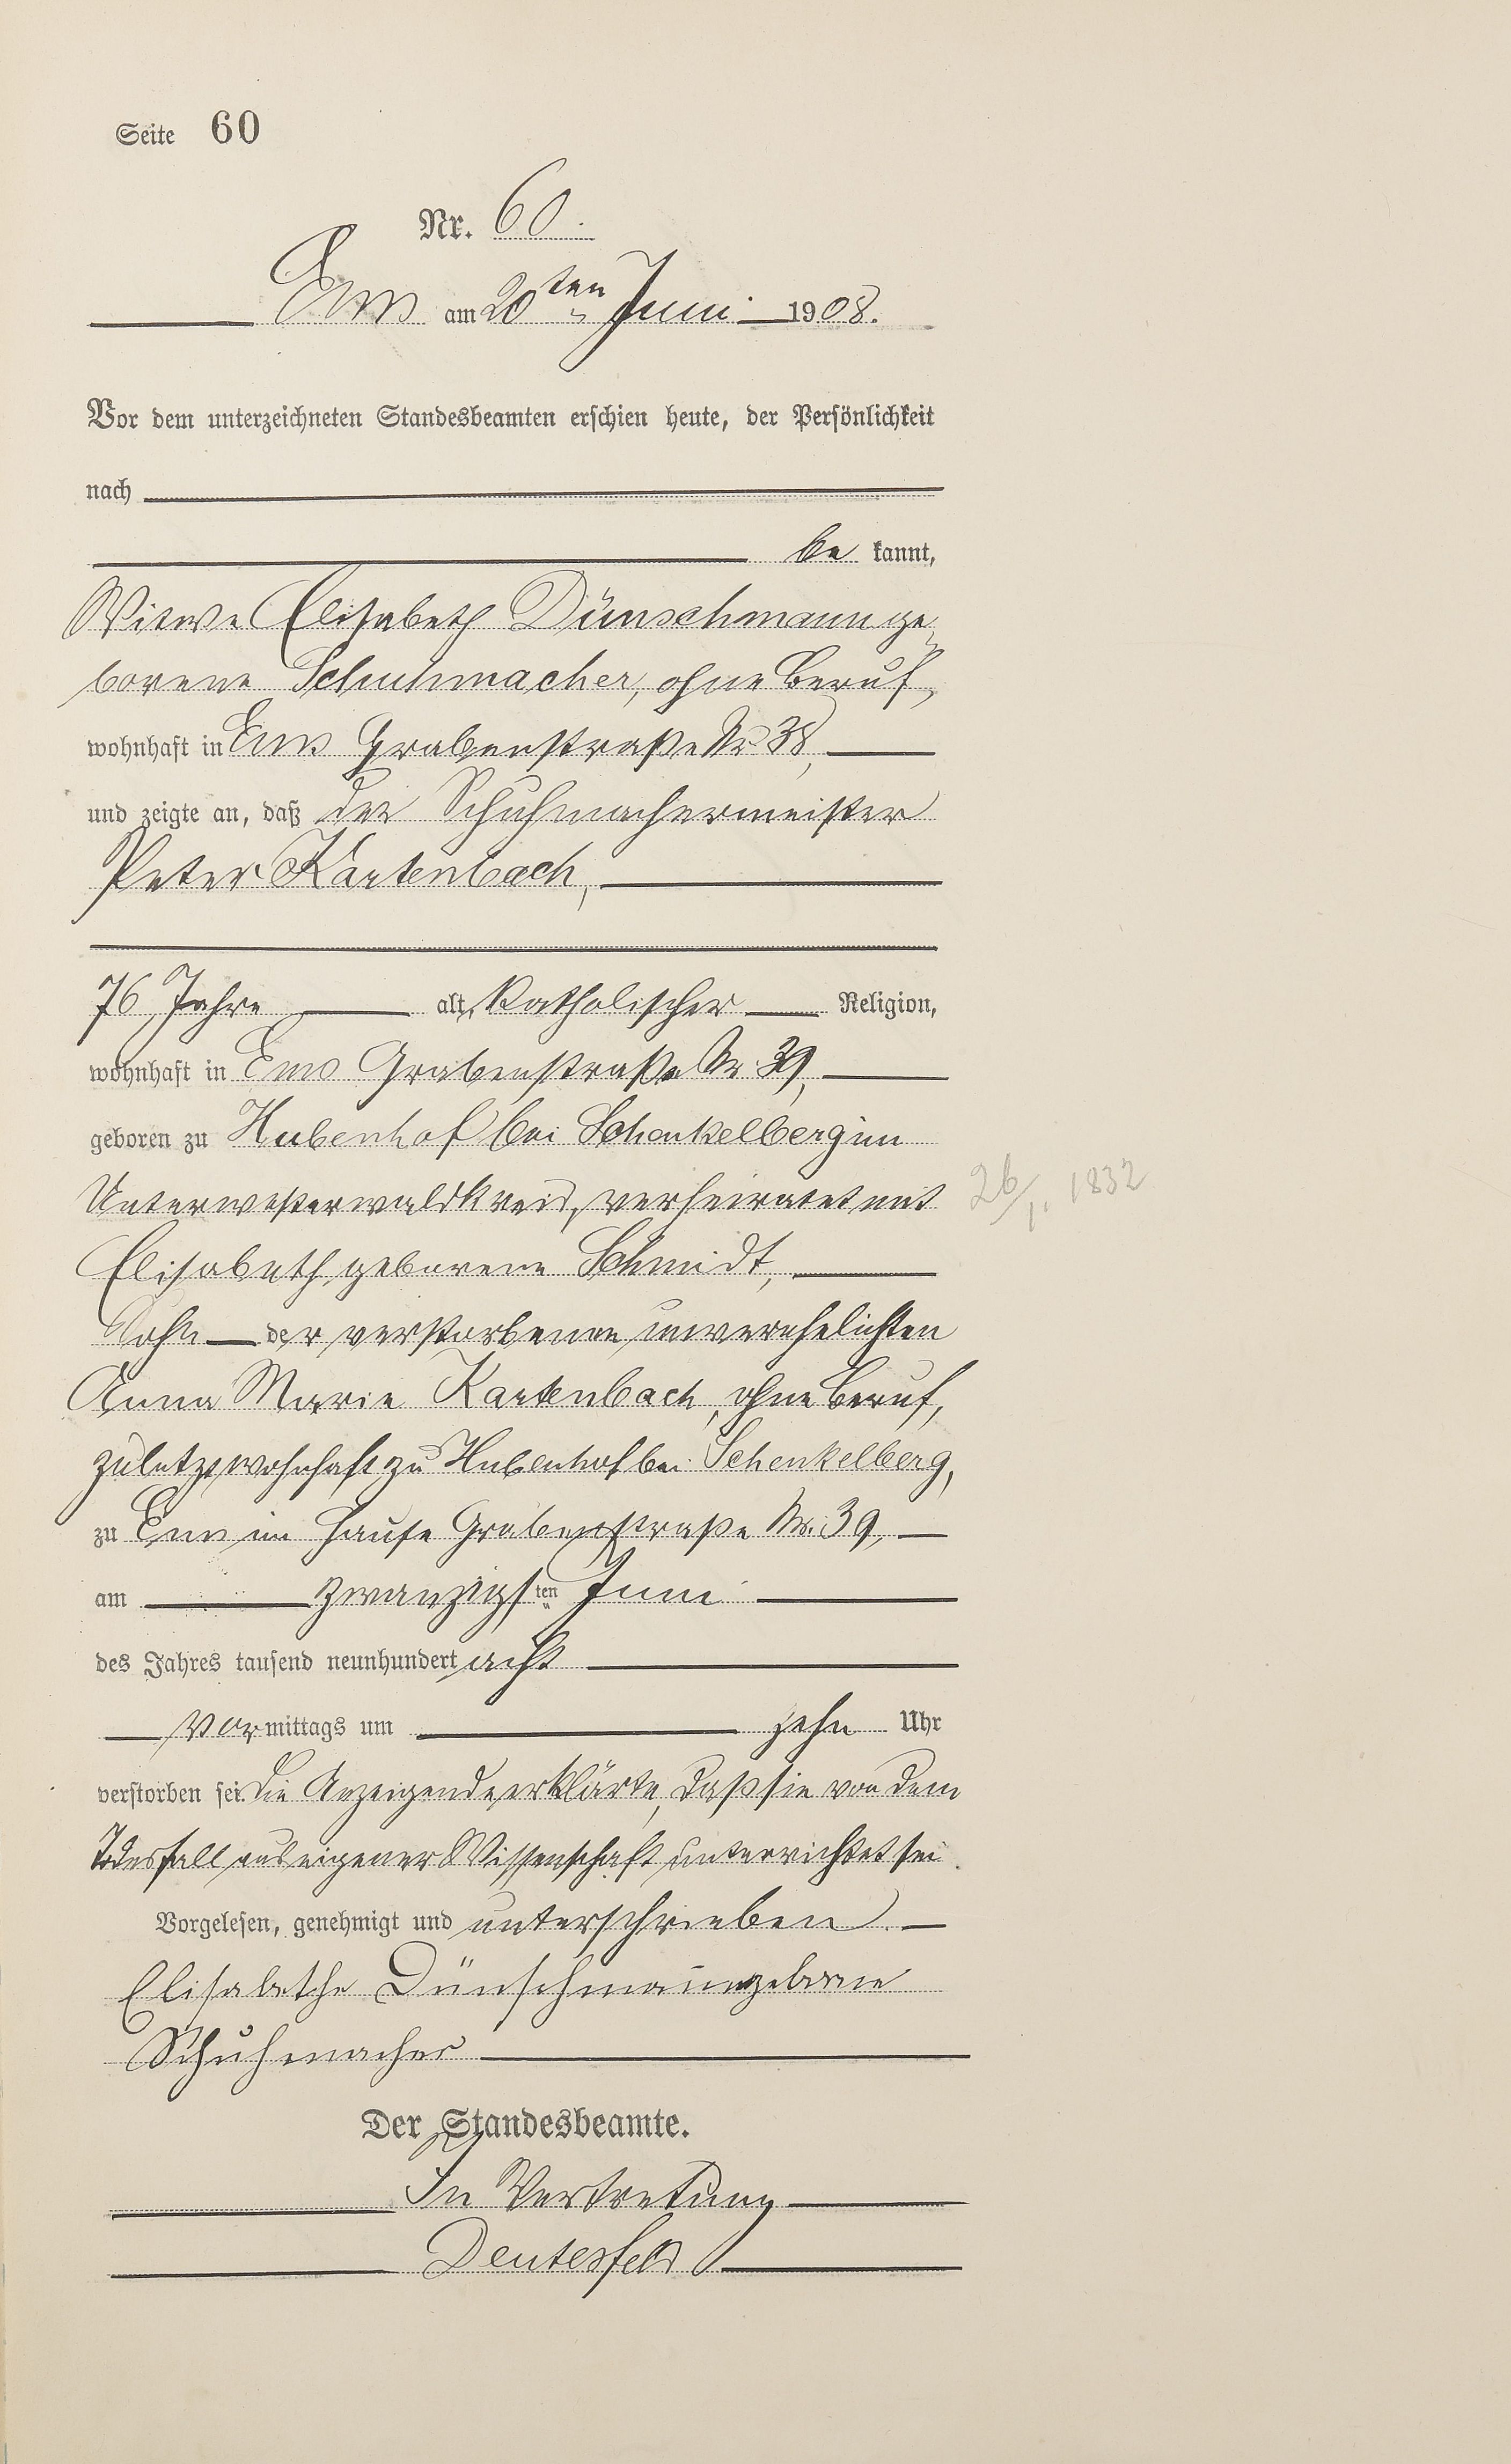 Seite 60
Nr. 60.
Ems am 20ten Juni 1908.
Vor dem unterzeichneten Standesbeamten erschien heute, der Persönlichkeit
nach
be kannt,
Witwe Elisabeth Dünschmann ge-
borene Schuhmacher, ohne Beruf,
wohnhaft in Ems Grabenstraße Nr. 38,
und zeigte an, daß der Schuhmachermeister
Peter Kartenbach,
76 Jahre alt, katholischer Religion,
wohnhaft in Ems Grabenstraße Nr. 39,
geboren zu Hubenhof bei Schenkelberg im
Unterwesterwaldkreis, verheiratet mit
26/1. 1832
Elisabeth geborene Schmidt,
Sohn der verstorbenen unverehelichten
Anna Marie Kartenbach, ohne Beruf,
zuletzt wohnhaft zu Hubenhof bei Schenkelberg,
zu Ems im Hause Grabenstraße Nr. 39,
am zwanzigsten Juni
des Jahres tausend neunhundert acht
Vormittags um zehn Uhr
verstorben sei. Die Anzeigende erklärte, daß sie von dem
Todesfall aus eigener Wissenschaft unterrichtet sei.
Vorgelesen, genehmigt und unterschrieben.
Elisabethe Dünschmann geborne
Schuhmacher
Der Standesbeamte.
In Vertretung
Deutesfeld